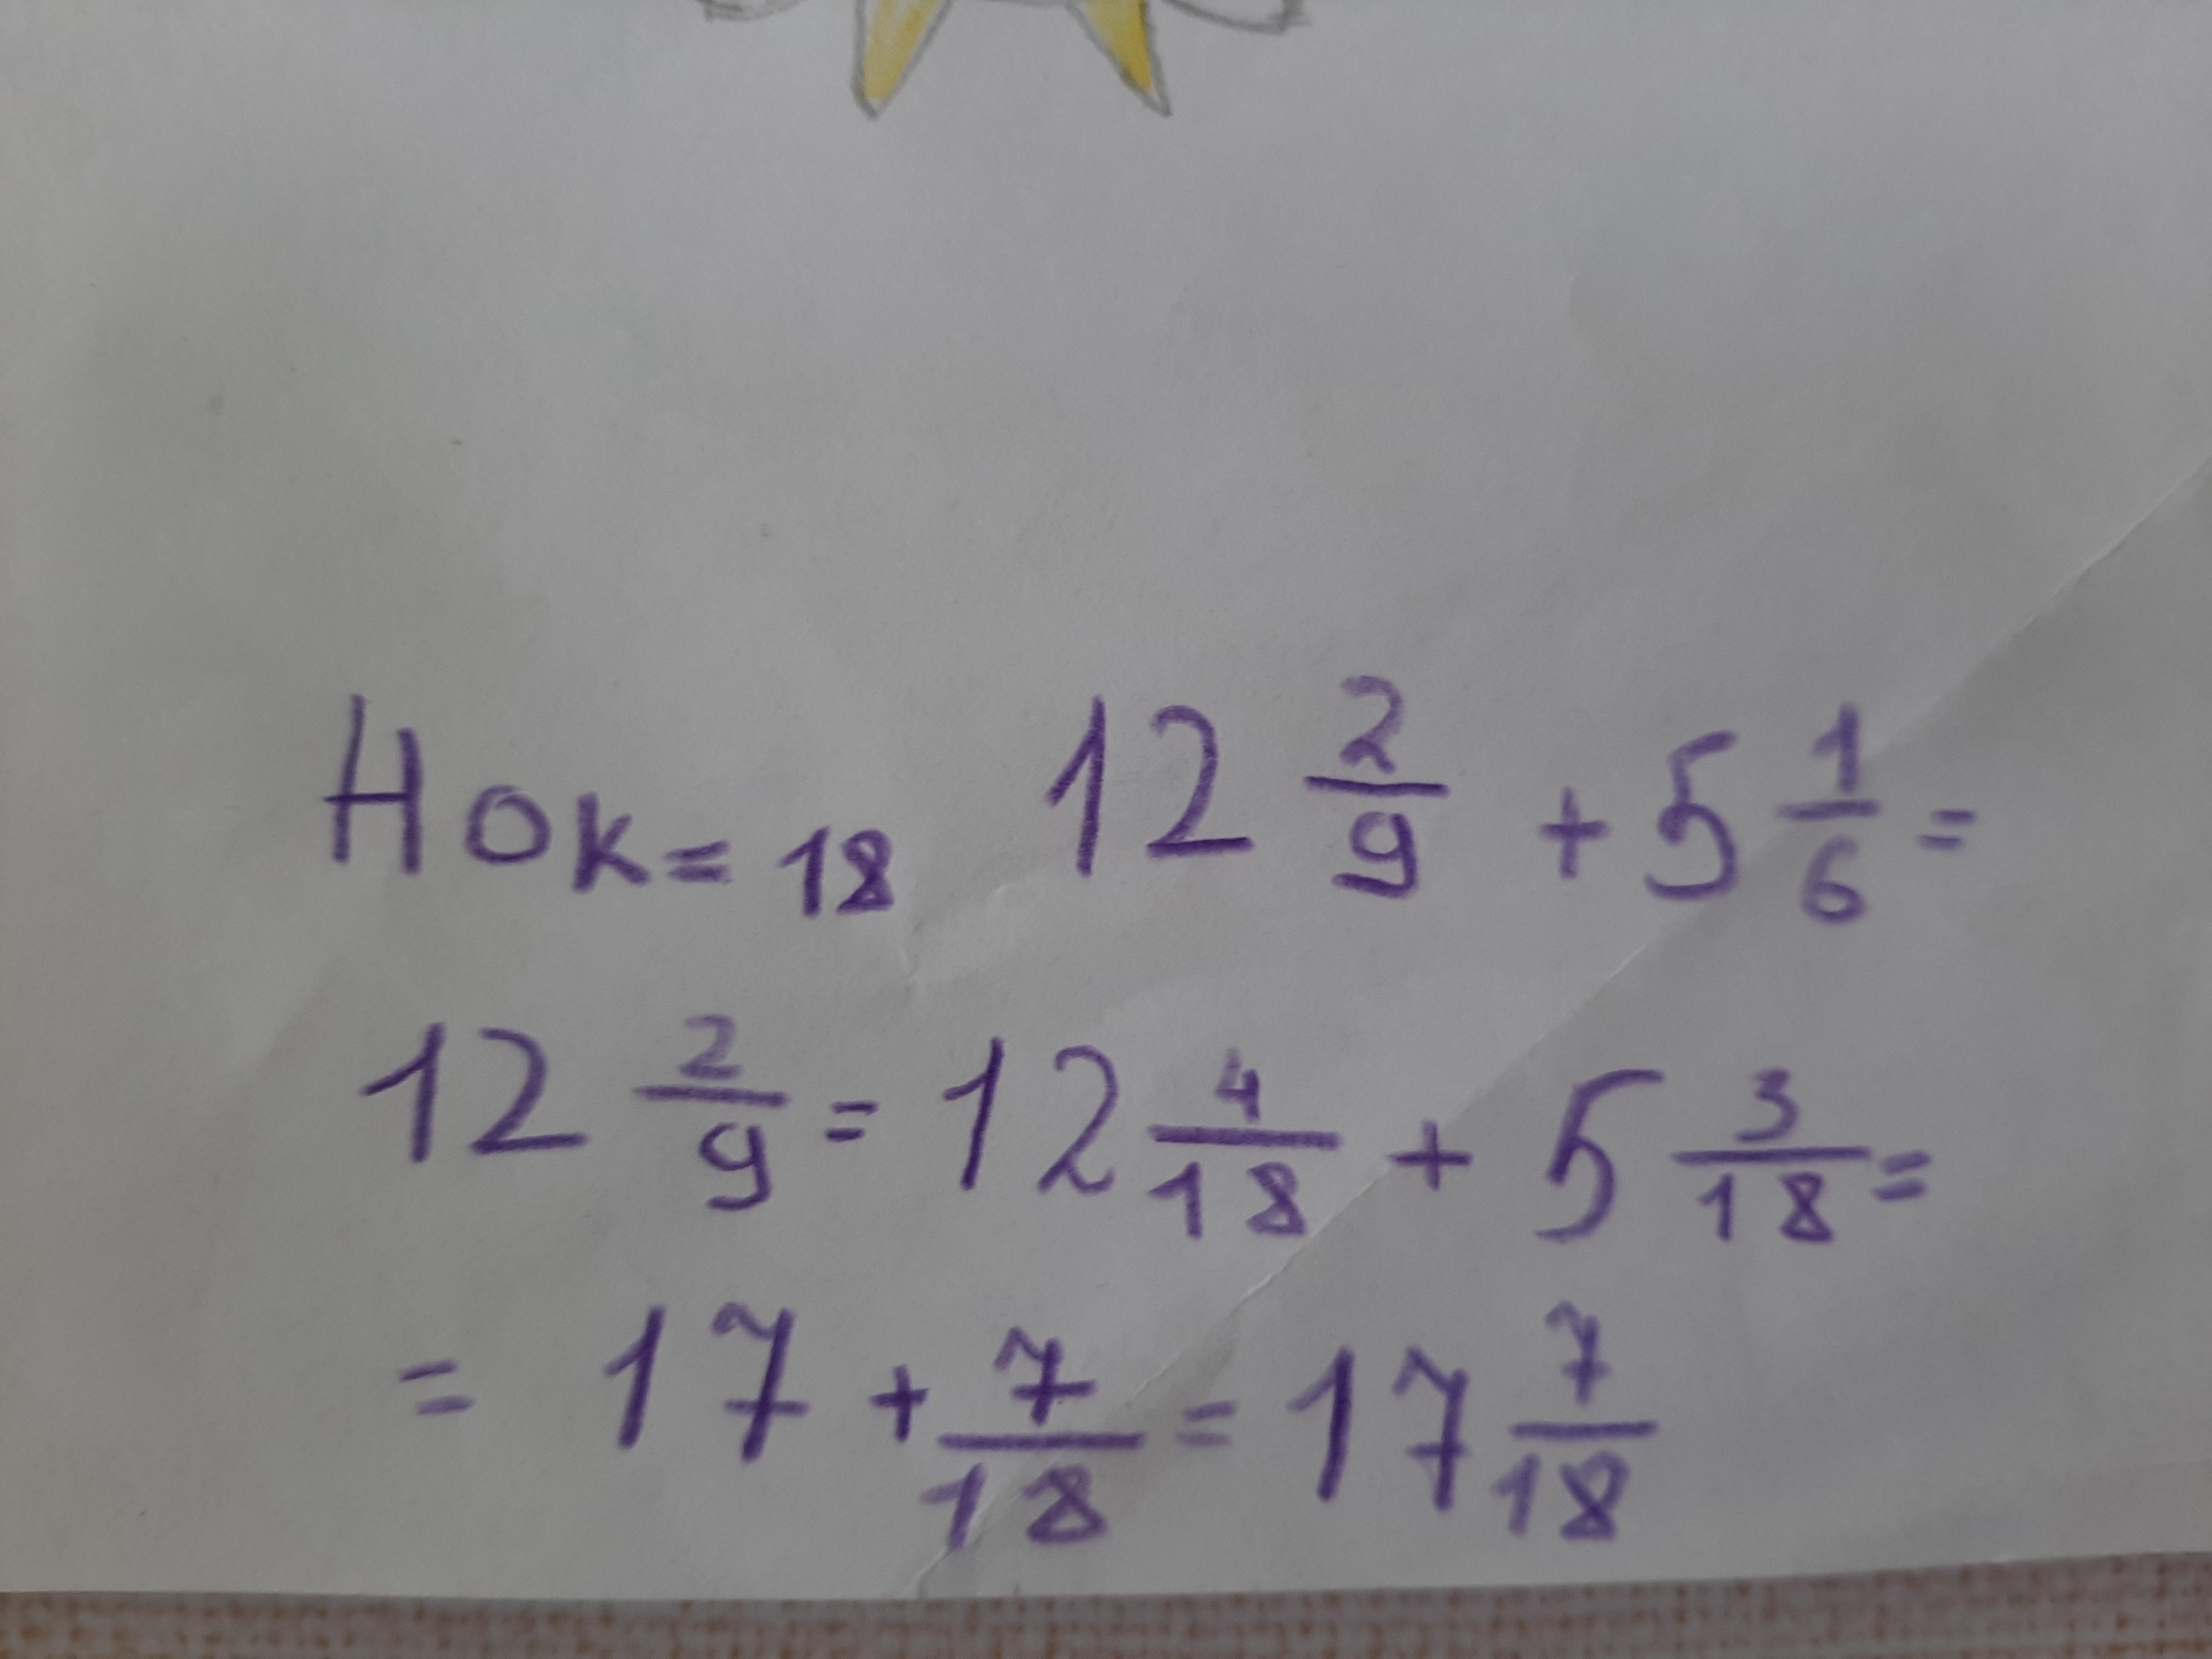 Нок = 18 12 2/9 + 5 1/6 =
12 2/9 = 12 4/18 + 5 3/18 =
= 17 + 7/18 = 17 7/18